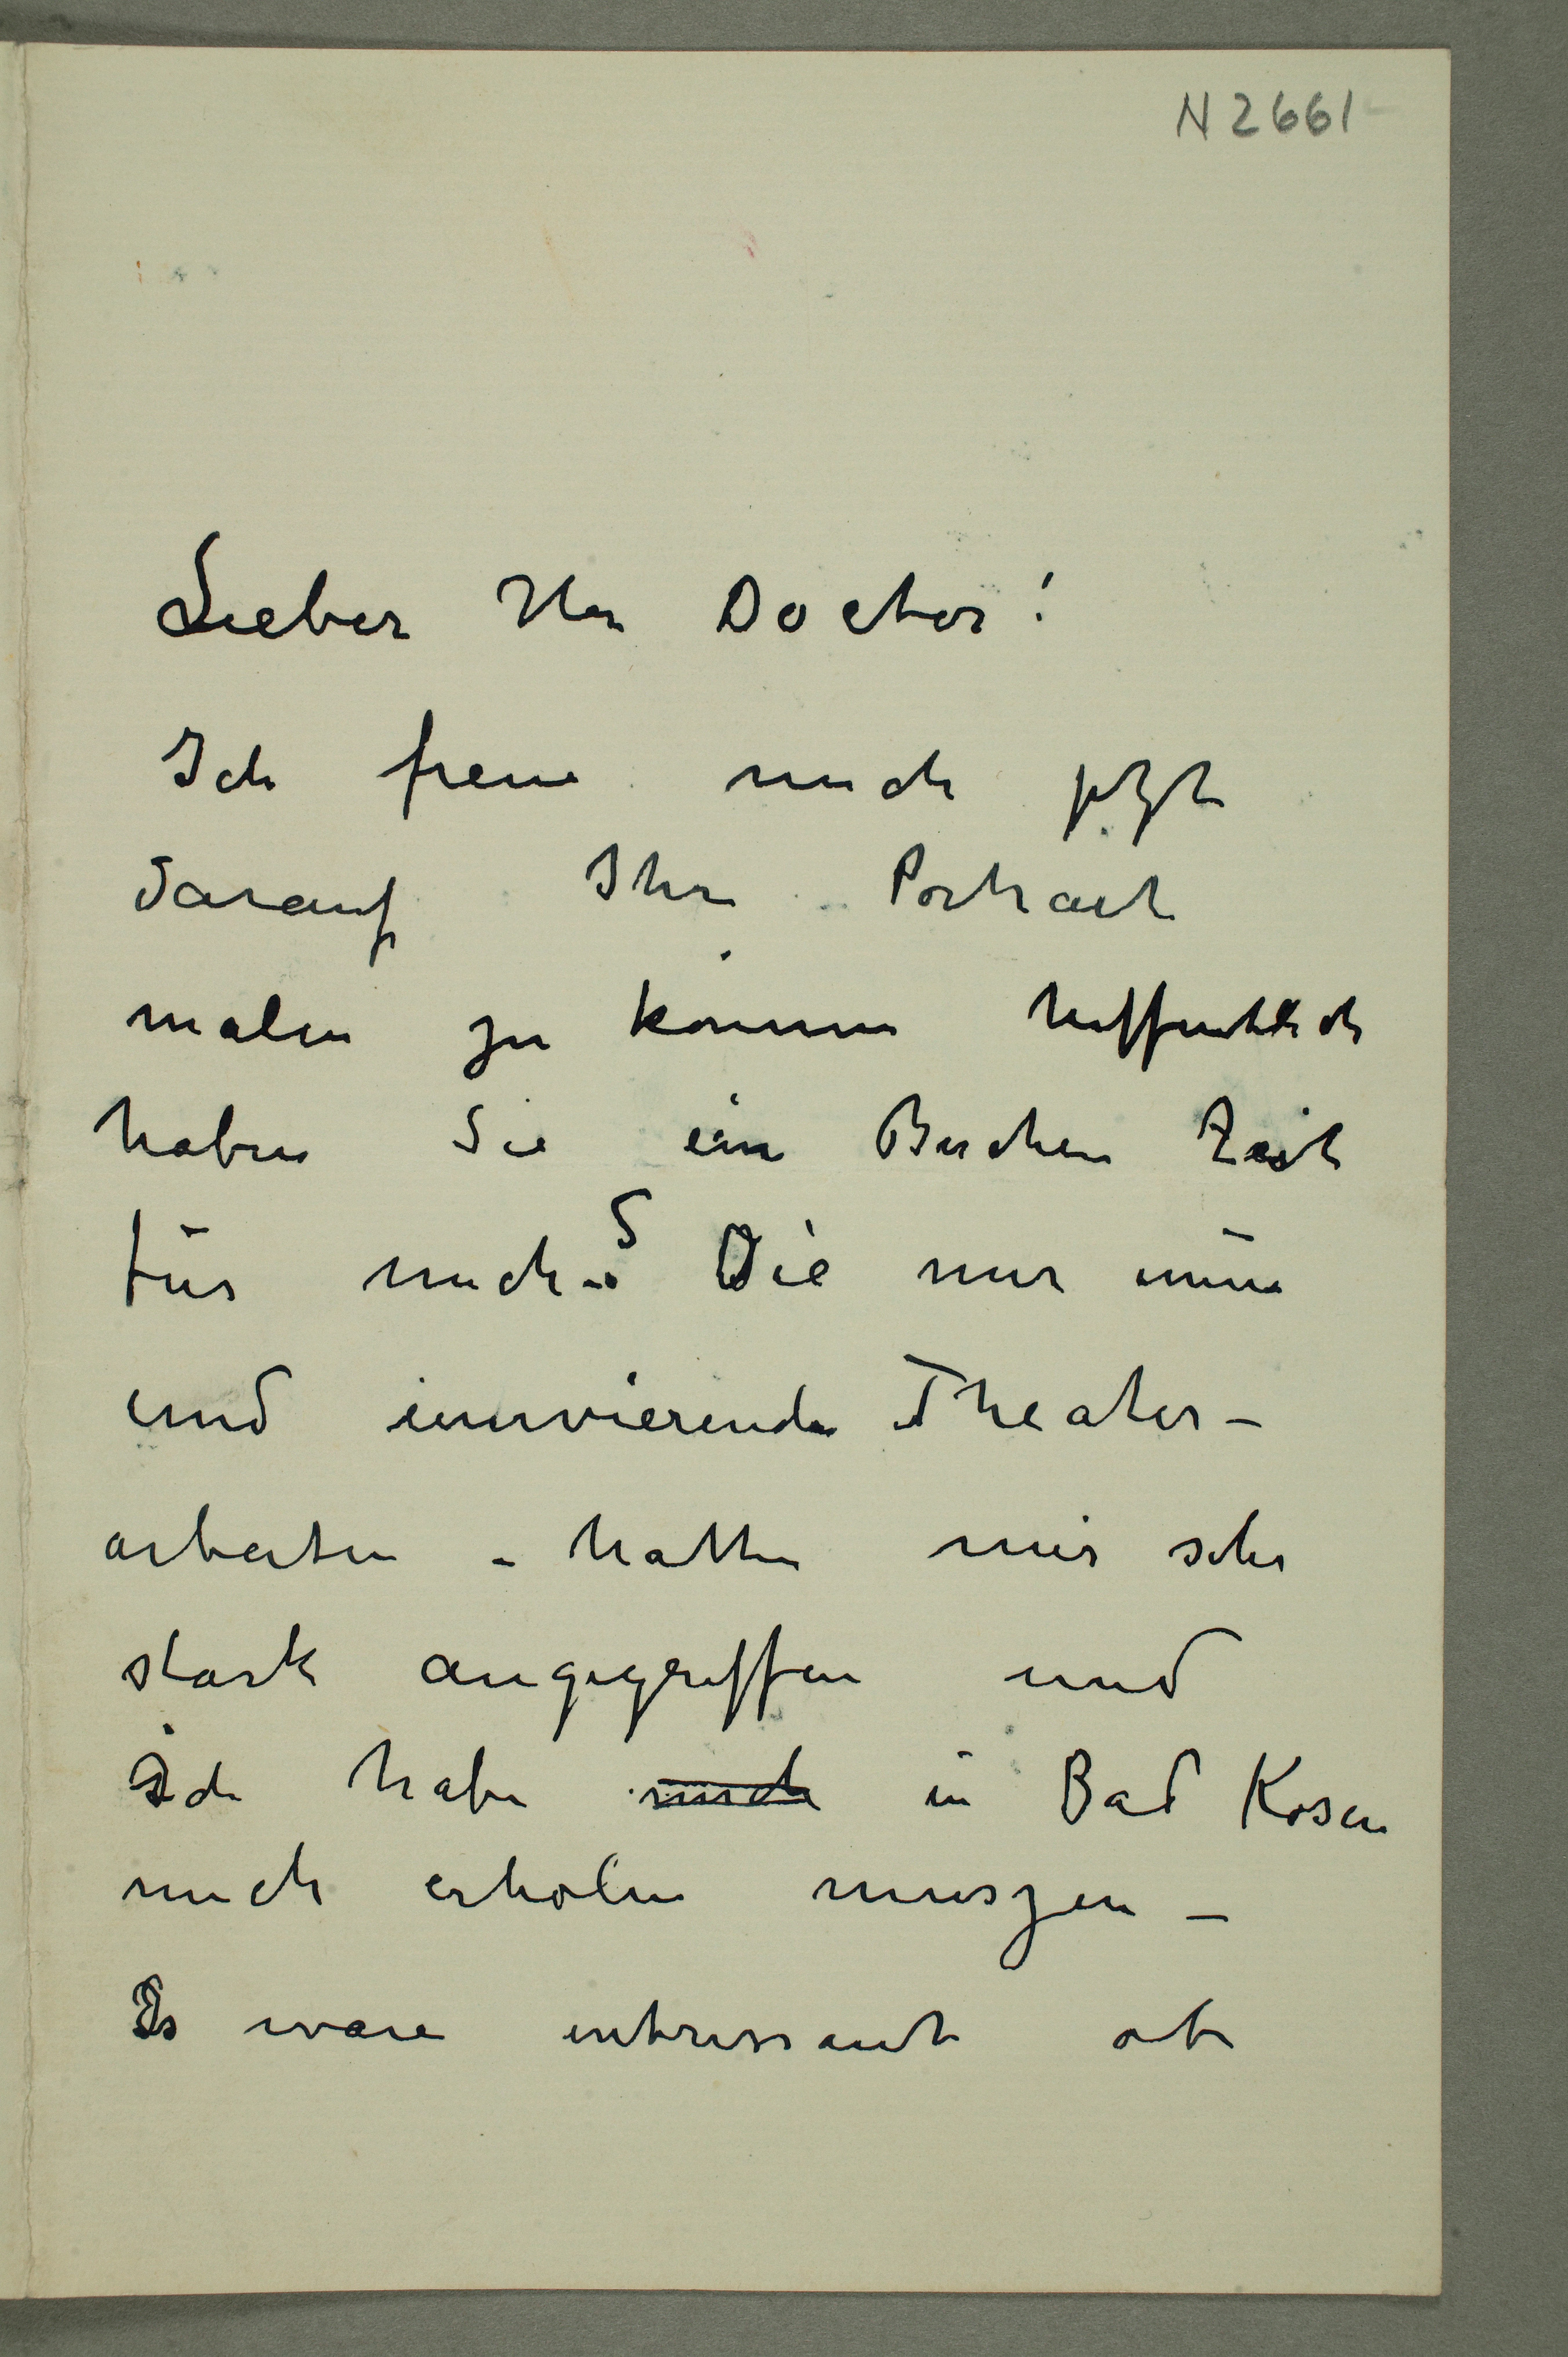 N 2661
Lieber Herr Doctor!
Ich freue mich jetzt
darauf Ihre Portrait
malen zu können hoffentlich
haben Sie ein Bischen Zeit
für mich. Die mir neue
und enervierende Theater–
arbeiten – hatten mir sehr
stark angegriffen und
ich habe mich in Bad Kosen
mich erholen muszen –
Es ware intressant ob